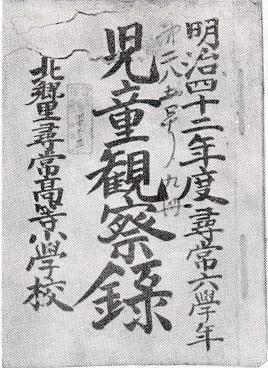 明治四十二年度尋常六學年
児童観察録
北郷里尋常高等小學校